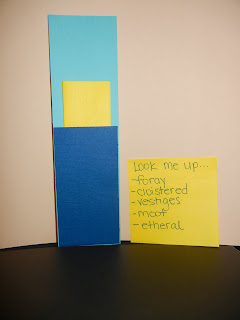 Look me up...
-foray
-cloistered
-vestiges
-moot
-etheral